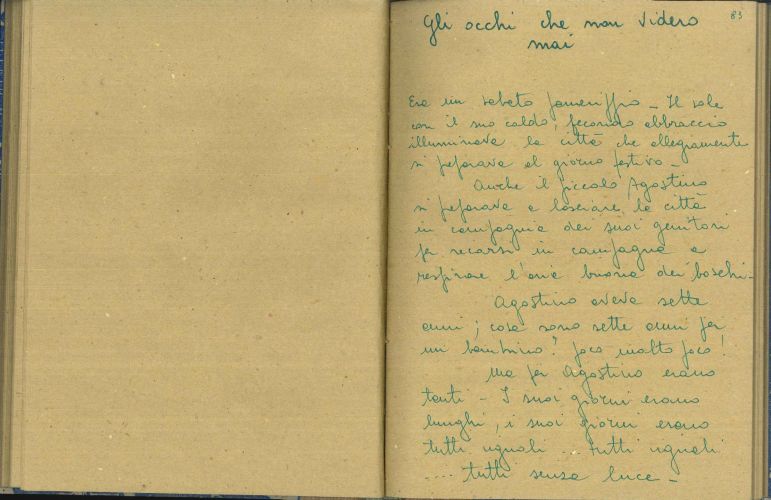 83
Gli occhi che non videro
mai
Era un sabato pomeriggio - Il sole
con il suo caldo, fecondo abbraccio
illuminava la città che allegramente
si preparava al giorno festivo -
Anche il piccolo Agostino
si preparava a lasciare la città
in compagnia dei suoi genitori
per recarsi in campagna a
respirare l'aria buona dei boschi -
Agostino aveva sette
anni; cosa sono sette anni per
un bambino? poco molto poco!
Ma per Agostino erano
tanti - I suoi giorni erano
lunghi, i suoi giorni erano
tutti uguali tutti uguali
.... tutti senza luce -